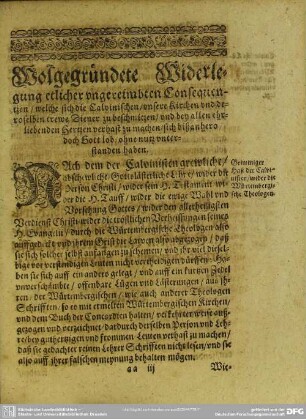 Wolgegründete Widerle-
gung etlicher vngereimbten Consequen-
tien / welche sich die Calvinischen / vnsere Kirchen vnd de-
roselben trewe Diener zu beschmitzen / vnd bey allen ehr-
liebenden Hertzen verhaßt zu machen / sich bißanhero
doch Gott lob / ohne nutz vnter-
standen haben.
NAch dem der Calvinisten grewliche /
abschewliche Gotteslästerliche Lehr / wider die
Person Christi / wider sein H. Testament / wi-
der die H. Tauff / wider die ewig Wahl vnd
Vorsehung Gottes / wider den allerheiligsten
Verdienst Christi / wider die trostlichen Verheissungen seines
H. Evangelii / durch die Würtembergische Theologen also
auffgedeckt / vnd jhrem Gifft die Larven also abgezogen / daß
sie sich solcher selbst anfangen zu schemen / vnd jhr viel diesel-
bige vor verständigen Leuten nicht verthedigen dürffen: Ha-
ben sie sich auff ein anders gelegt / vnd auff ein kurtzen Zedel
vnverschämbte / offenbare Lügen vnd Lästerungen / aus jh-
ren / der Würtembergischen / wie auch anderer Theologen
Schrifften / so es mit ermelten Würtembergischen Kirchen /
vnd dem Buch der Concordien halten /
gezogen vnd verzeichnet / dardurch derselben Person vnd Leh-
re bey vielen guthertzigen vnd frommen Leuten verhaßt zu machen /
daß sie gedachter reinen Lehrer Schrifften nicht lesen / vnd sie
also auff jhrer falschen meynung behalten mögen.
Grimmiger
Haß der Calvi-
nisten / wider die
Würtembergi-
sche Theologen.
aa iij
Wie-